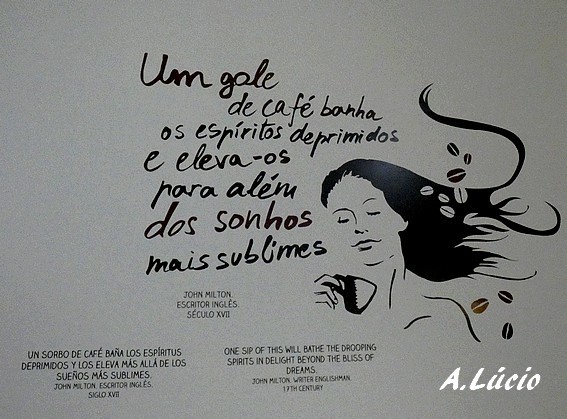 Um gole
de café banha
os espíritos deprimidos
e eleva-os
para além
dos sonhos
mais sublimes
JOHN MILTON.
ESCRITOR INGLÊS.
SÉCULO XVII
UN SORBO DE CAFÉ BAÑA LOS ESPÍRITUS
DEPRIMIDOS Y LOS ELEVA MÁS ALLÁ DE LOS
SUEÑOS MÁS SUBLIMES.
JOHN MILTON. ESCRITOR INGLÉS.
SIGLO XVII
ONE SIP OF THIS WILL BATHE THE DROOPING
SPIRITS IN DELIGHT BEYOND THE BLISS OF
DREAMS.
JOHN MILTON. WRITER ENGLISHMAN.
17TH CENTURY
A.Lúcio